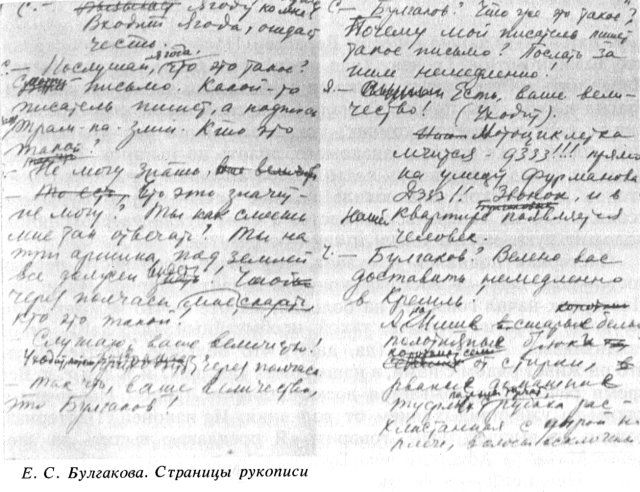 С. — Ягоду ко мне!
Входит Ягода, отдает
честь
— Послушай, Ягода, что это такое?
письмо. Какой-то
писатель пишет, а подписано
Трам-па-злин. Кто это
такой?
— Не могу знать,
— То есть, что это значит —
не могу? Ты как смеешь
мне так отвечать? Ты на
три аршина под землей
все должен видеть! Чтоб
через полчаса мне сказать
кто это такой
Слушаю, ваше величество!
Уходит, через полчаса
— Так что, ваше величество,
это Булгаков!
С. — Булгаков? Что же это такое?
Почему мой писатель пишет
такое письмо? Послать за
ним немедленно!
Я. — Есть, ваше вели-
чество! (Уходит).
Мотоциклетка
мчится — дззз!!! прямо
на улицу Фурманова
Дззз!! Звонок, и в
нашей квартире появляется
человек.
Ч. — Булгаков? Велено вас
доставить немедленно
в Кремль
А на Мише старые бело-
полотняные брюки
короткие
от стирки,
рваные домашние
туфли, рубаха рас-
хлястанная с дырой на
плече, волосы всклочены
Е. С. Булгакова. Страницы рукописи